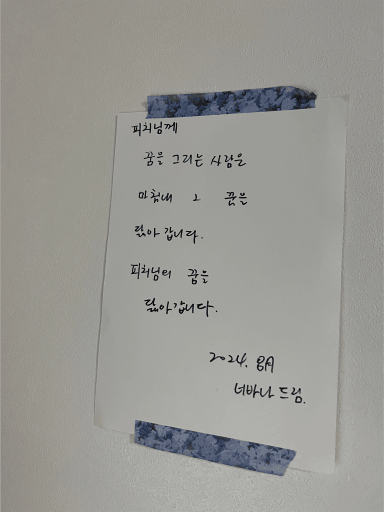 피치님께
꿈을 그리는 사람은
마침내 그 꿈을
닮아 갑니다.
피치님의 꿈을
닮아갑니다.
2024. 8月
너바나 드림.